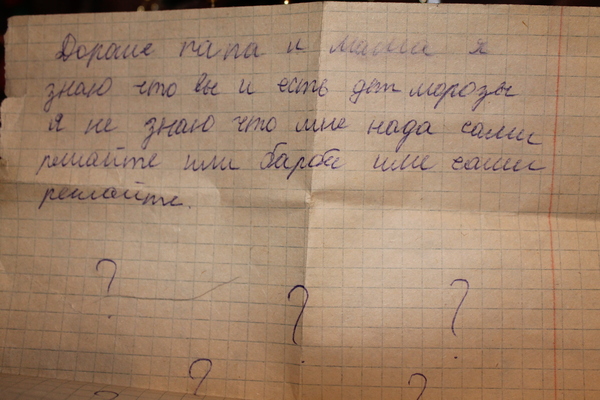 Дороие папа и мама я
знаю что вы и есть дет морозы
я не знаю что мне нада сами
решайте или барби или сами
решайте.
? ? ?
? ?